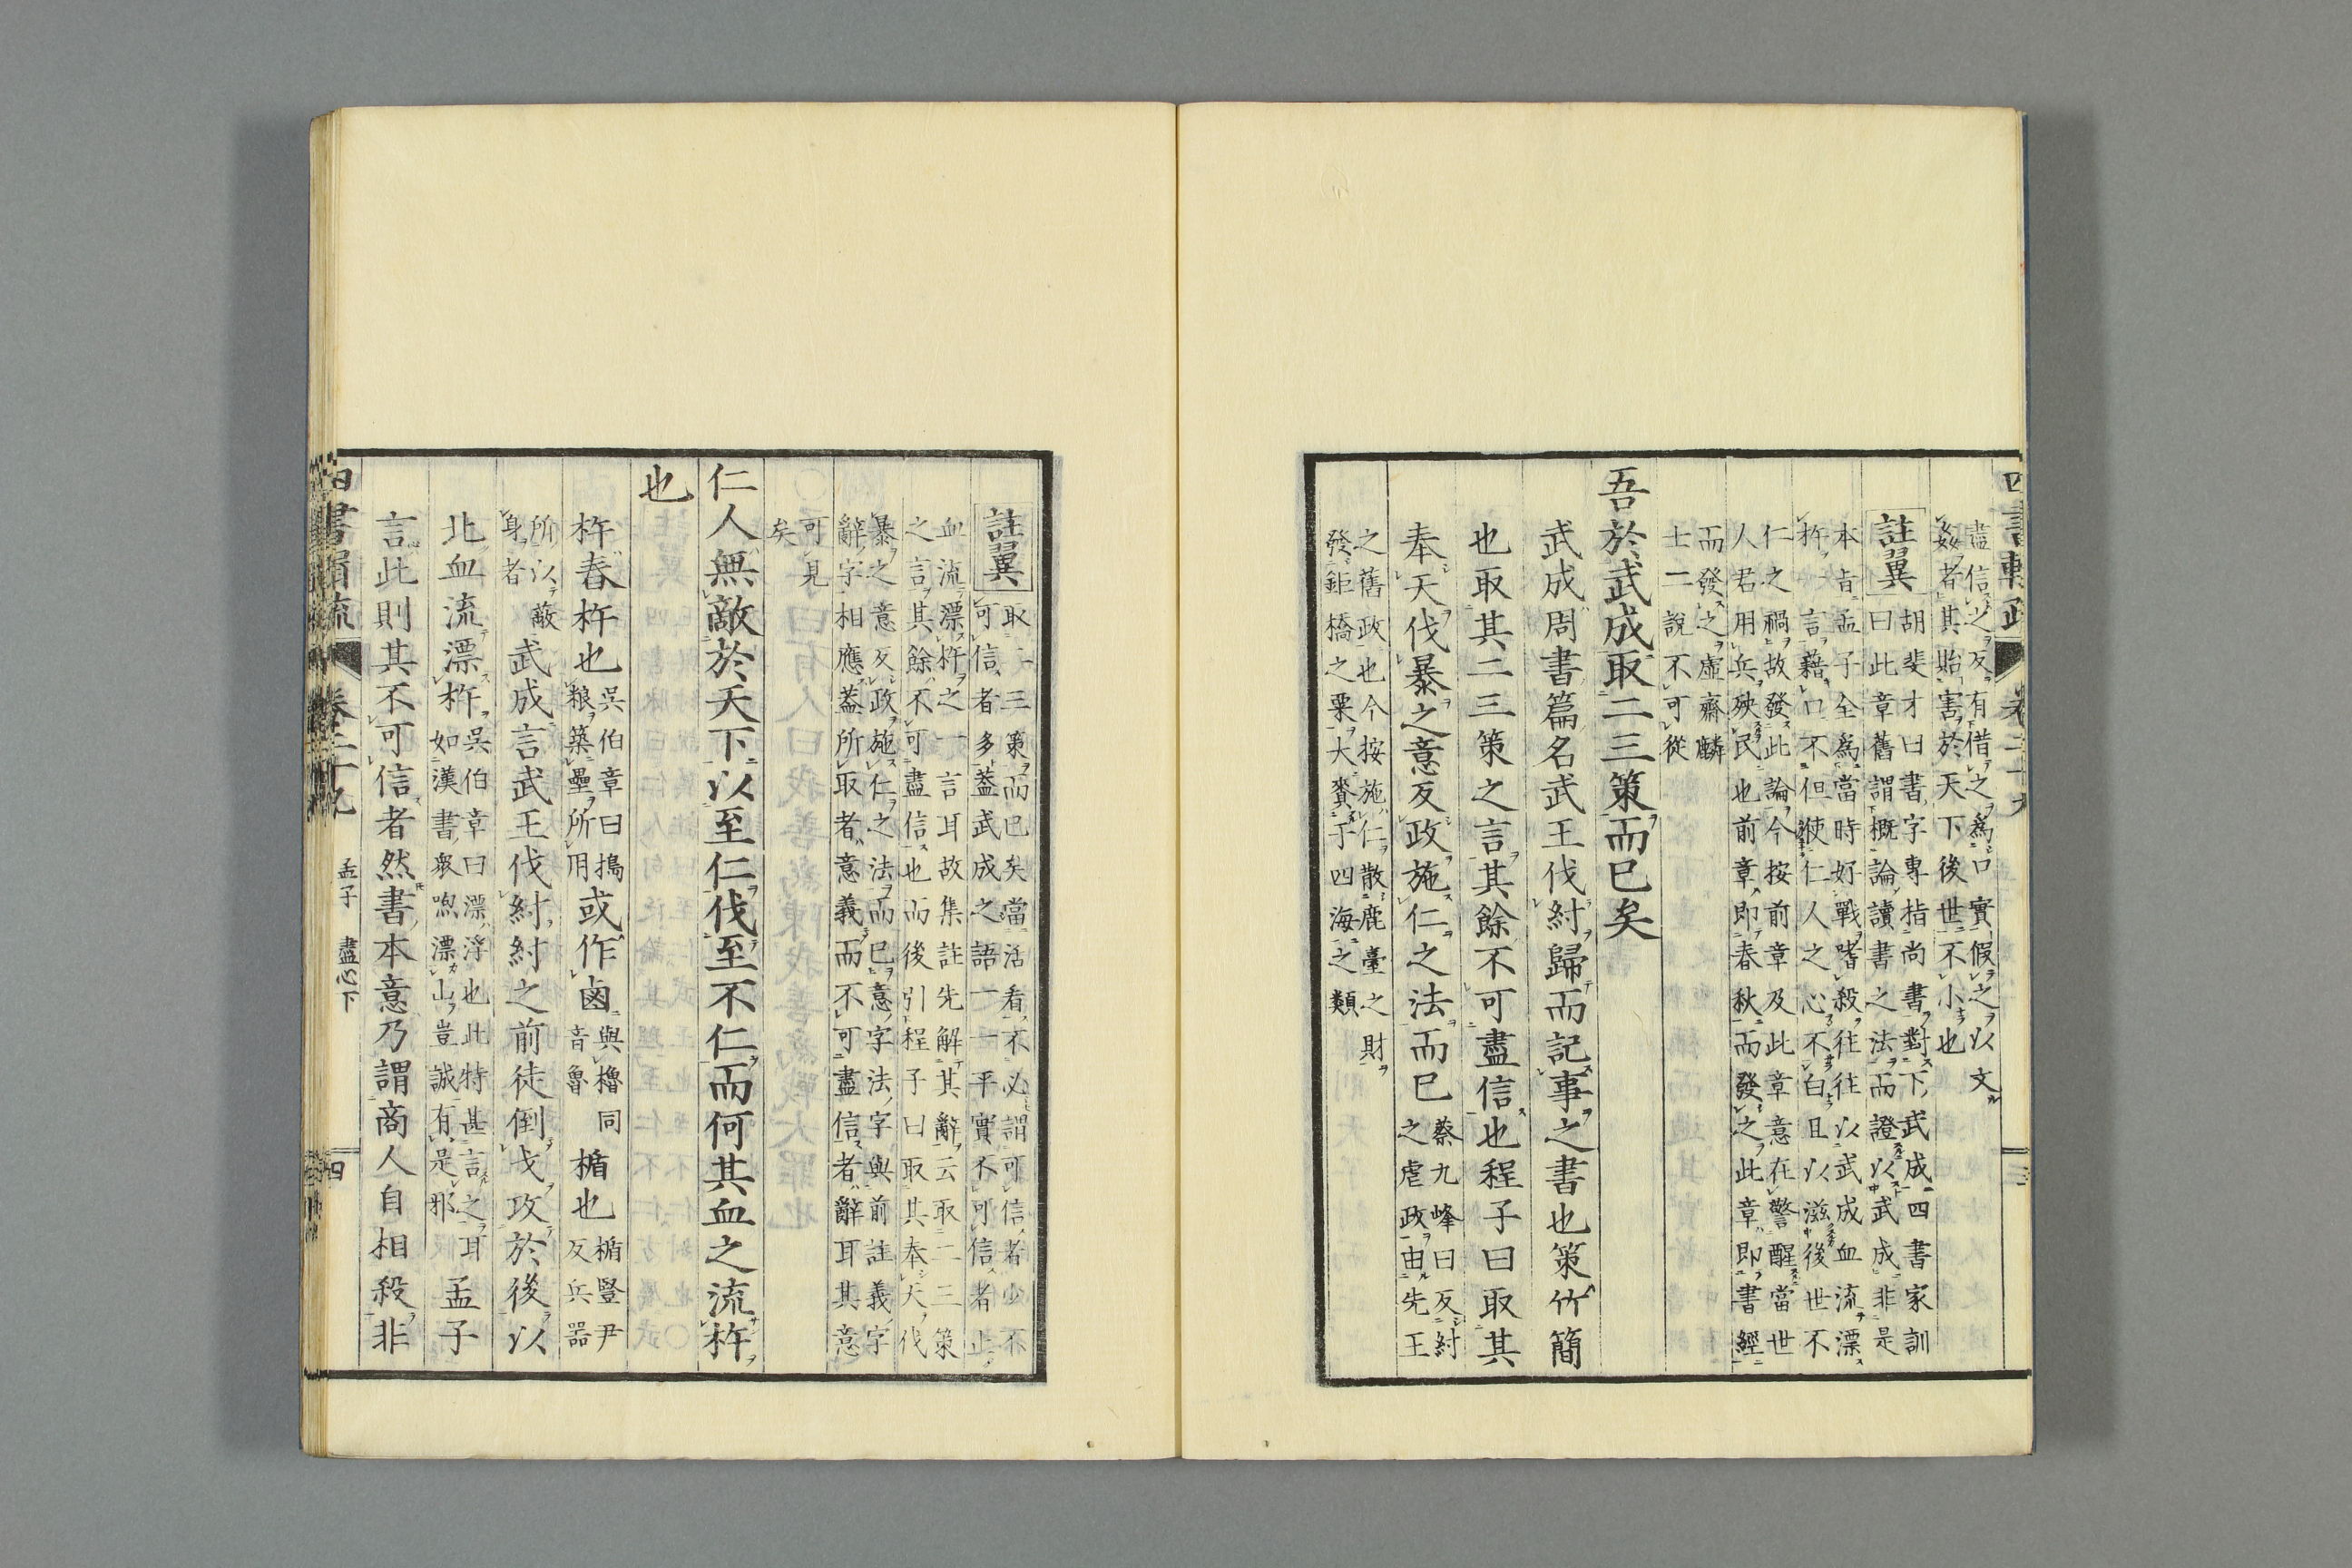 盡信之反有借之爲口實假之以文
姦者其貽害於天下後世不小也
註翼
胡斐才曰書字專指尚書對下武成四書家訓
曰此章舊謂概論讀書之法而證以武成非是
本旨孟子全爲當時好戰嗜殺往往以武成血流漂
杵之言藉口不但使仁人之心不白且以滋後世不
仁之禍故發此論今按前章及此章意在警醒當世
人君用兵殃民也前章即春秋而發之此章即書經
而發之虛齋麟
士二說不可從
吾於武成取二三策而已矣
武成周書篇名武王伐紂歸而記事之書也策竹簡
也取其二三策之言其餘不可盡信也程子曰取其
奉天伐暴之意反政施仁之法而已
蔡九峰曰反紂
之虐政由先王
之舊政也今按施仁散鹿臺之財
發鉅橋之粟大賚于四海之類
註翼
取二三策而已矣當活看不必謂可信者少不
可信者多蓋武成之語一一平實不可信者止
血流漂杵之一言耳故集註先解其辭云取二三策
之言其餘不可盡信也而後引程子曰取其奉天伐
暴之意反政施仁之法而已意字法字與前註義字
辭字相應蓋所取者意義而不可盡信者辭耳其意
可見
矣
仁人無敵於天下以至仁伐至不仁而何其血之流杵
也
杵舂杵也
吳伯章曰搗
粮築壘所用
或作鹵
與櫓同
音魯
楯也
楯豎尹
反兵器
所以蔽
身者
武成言武王伐紂紂之前徒倒戈攻於後以
北血流漂杵
吳伯章曰漂浮也此特甚言之耳
如漢書衆喣漂山豈誠有是邪
孟子
言此則其不可信者然書本意乃謂商人自相殺非
卷二十九
孟子 盡心下
四